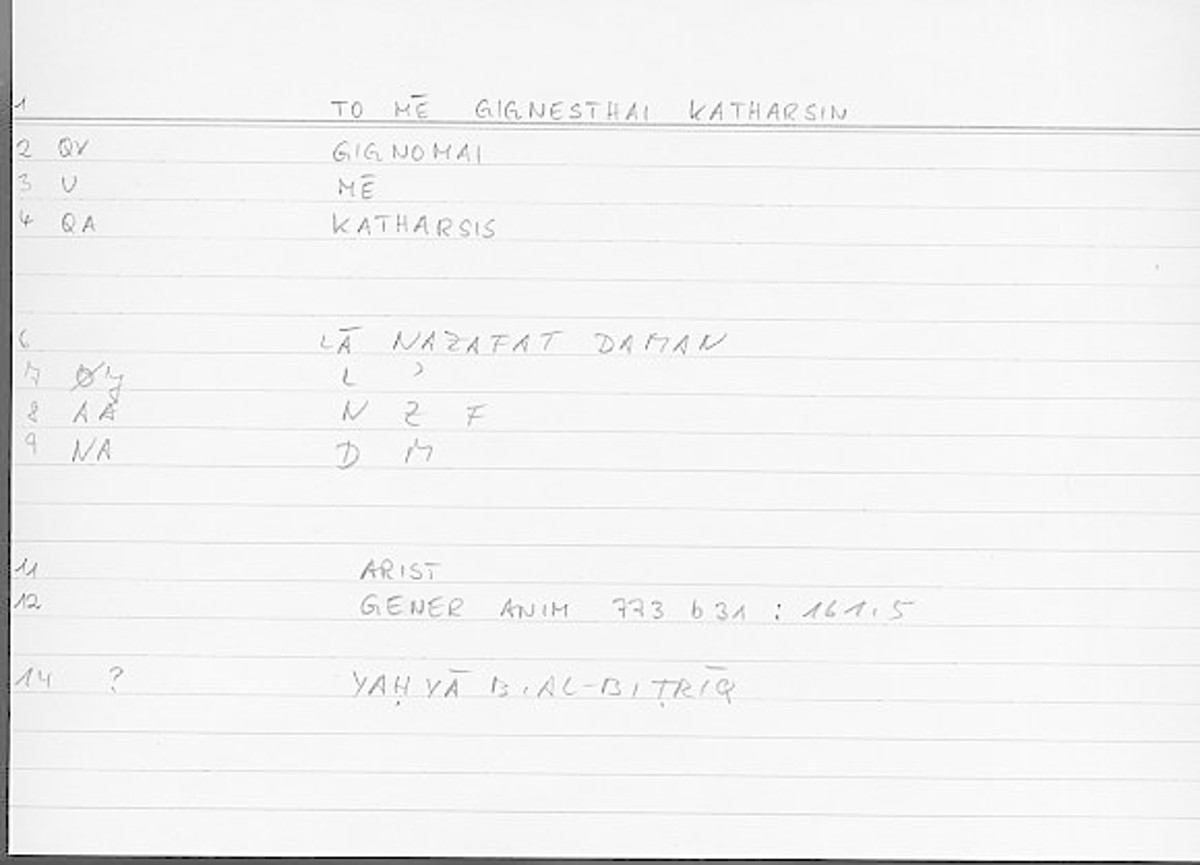 1 TO MĒ GIGNESTHAI KATHARSIN
2 QV GIGNOMAI
3 U MĒ
4 QA KATHARSIS
6 LĀ NAZAFAT DAMAN
7 L ʾ
8 AA N Z F
9 NA D M
11 ARIST
12 GENER ANIM 773 b 31 : 161.5
14 ? YAḤYĀ B.AL-BIṬRĪQ